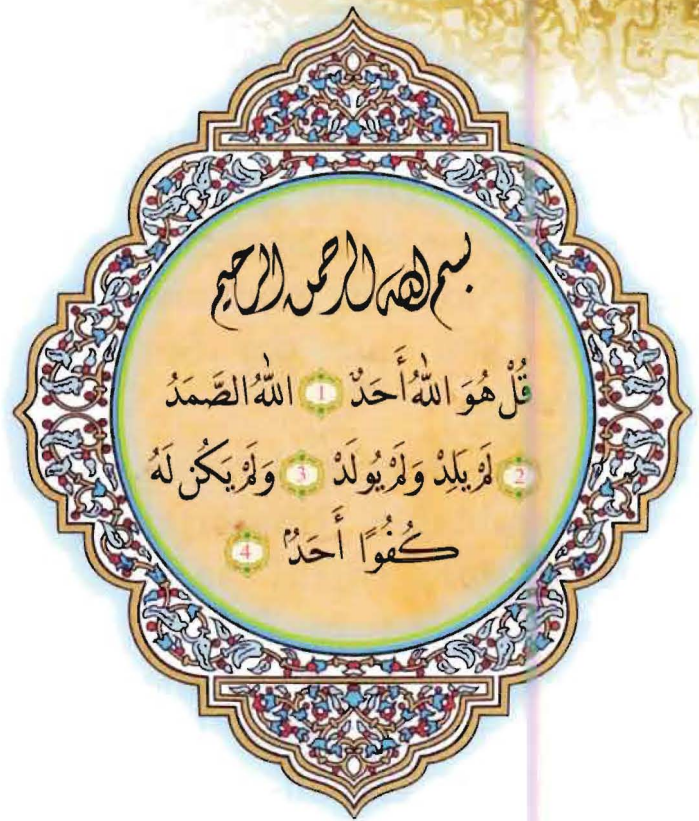 بسم الله الرحمن الرحيم
قُلْ هُوَ اللّٰهُ أَحَدٌ 1 اللّٰهُ الصَّمَدُ
2 لَمْ يَلِدْ وَلَمْ يُولَدْ 3 وَلَمْ يَكُن لَهُ
كُفُوًا أَحَدٌ 4